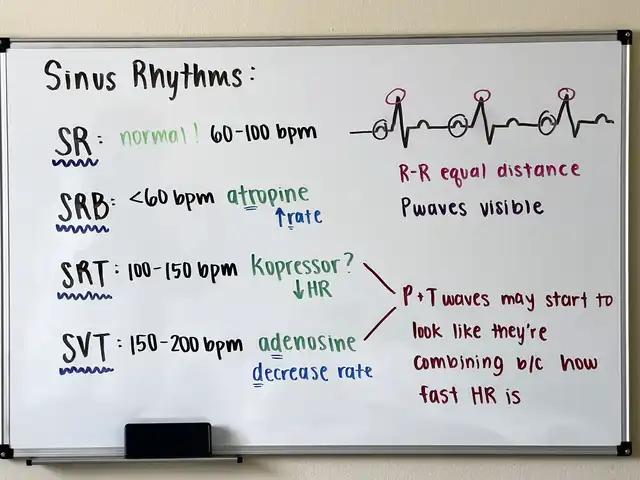 Sinus Rhythms:
SR: normal! 60-100 bpm
SRB: <60 bpm atropine
↑rate
SRT: 100-150 bpm Kopressor?
↓HR
SVT: 150-200 bpm adenosine
decrease rate
R-R equal distance
Pwaves visible
P+T waves may start to
look like they're
combining b/c how
fast HR is